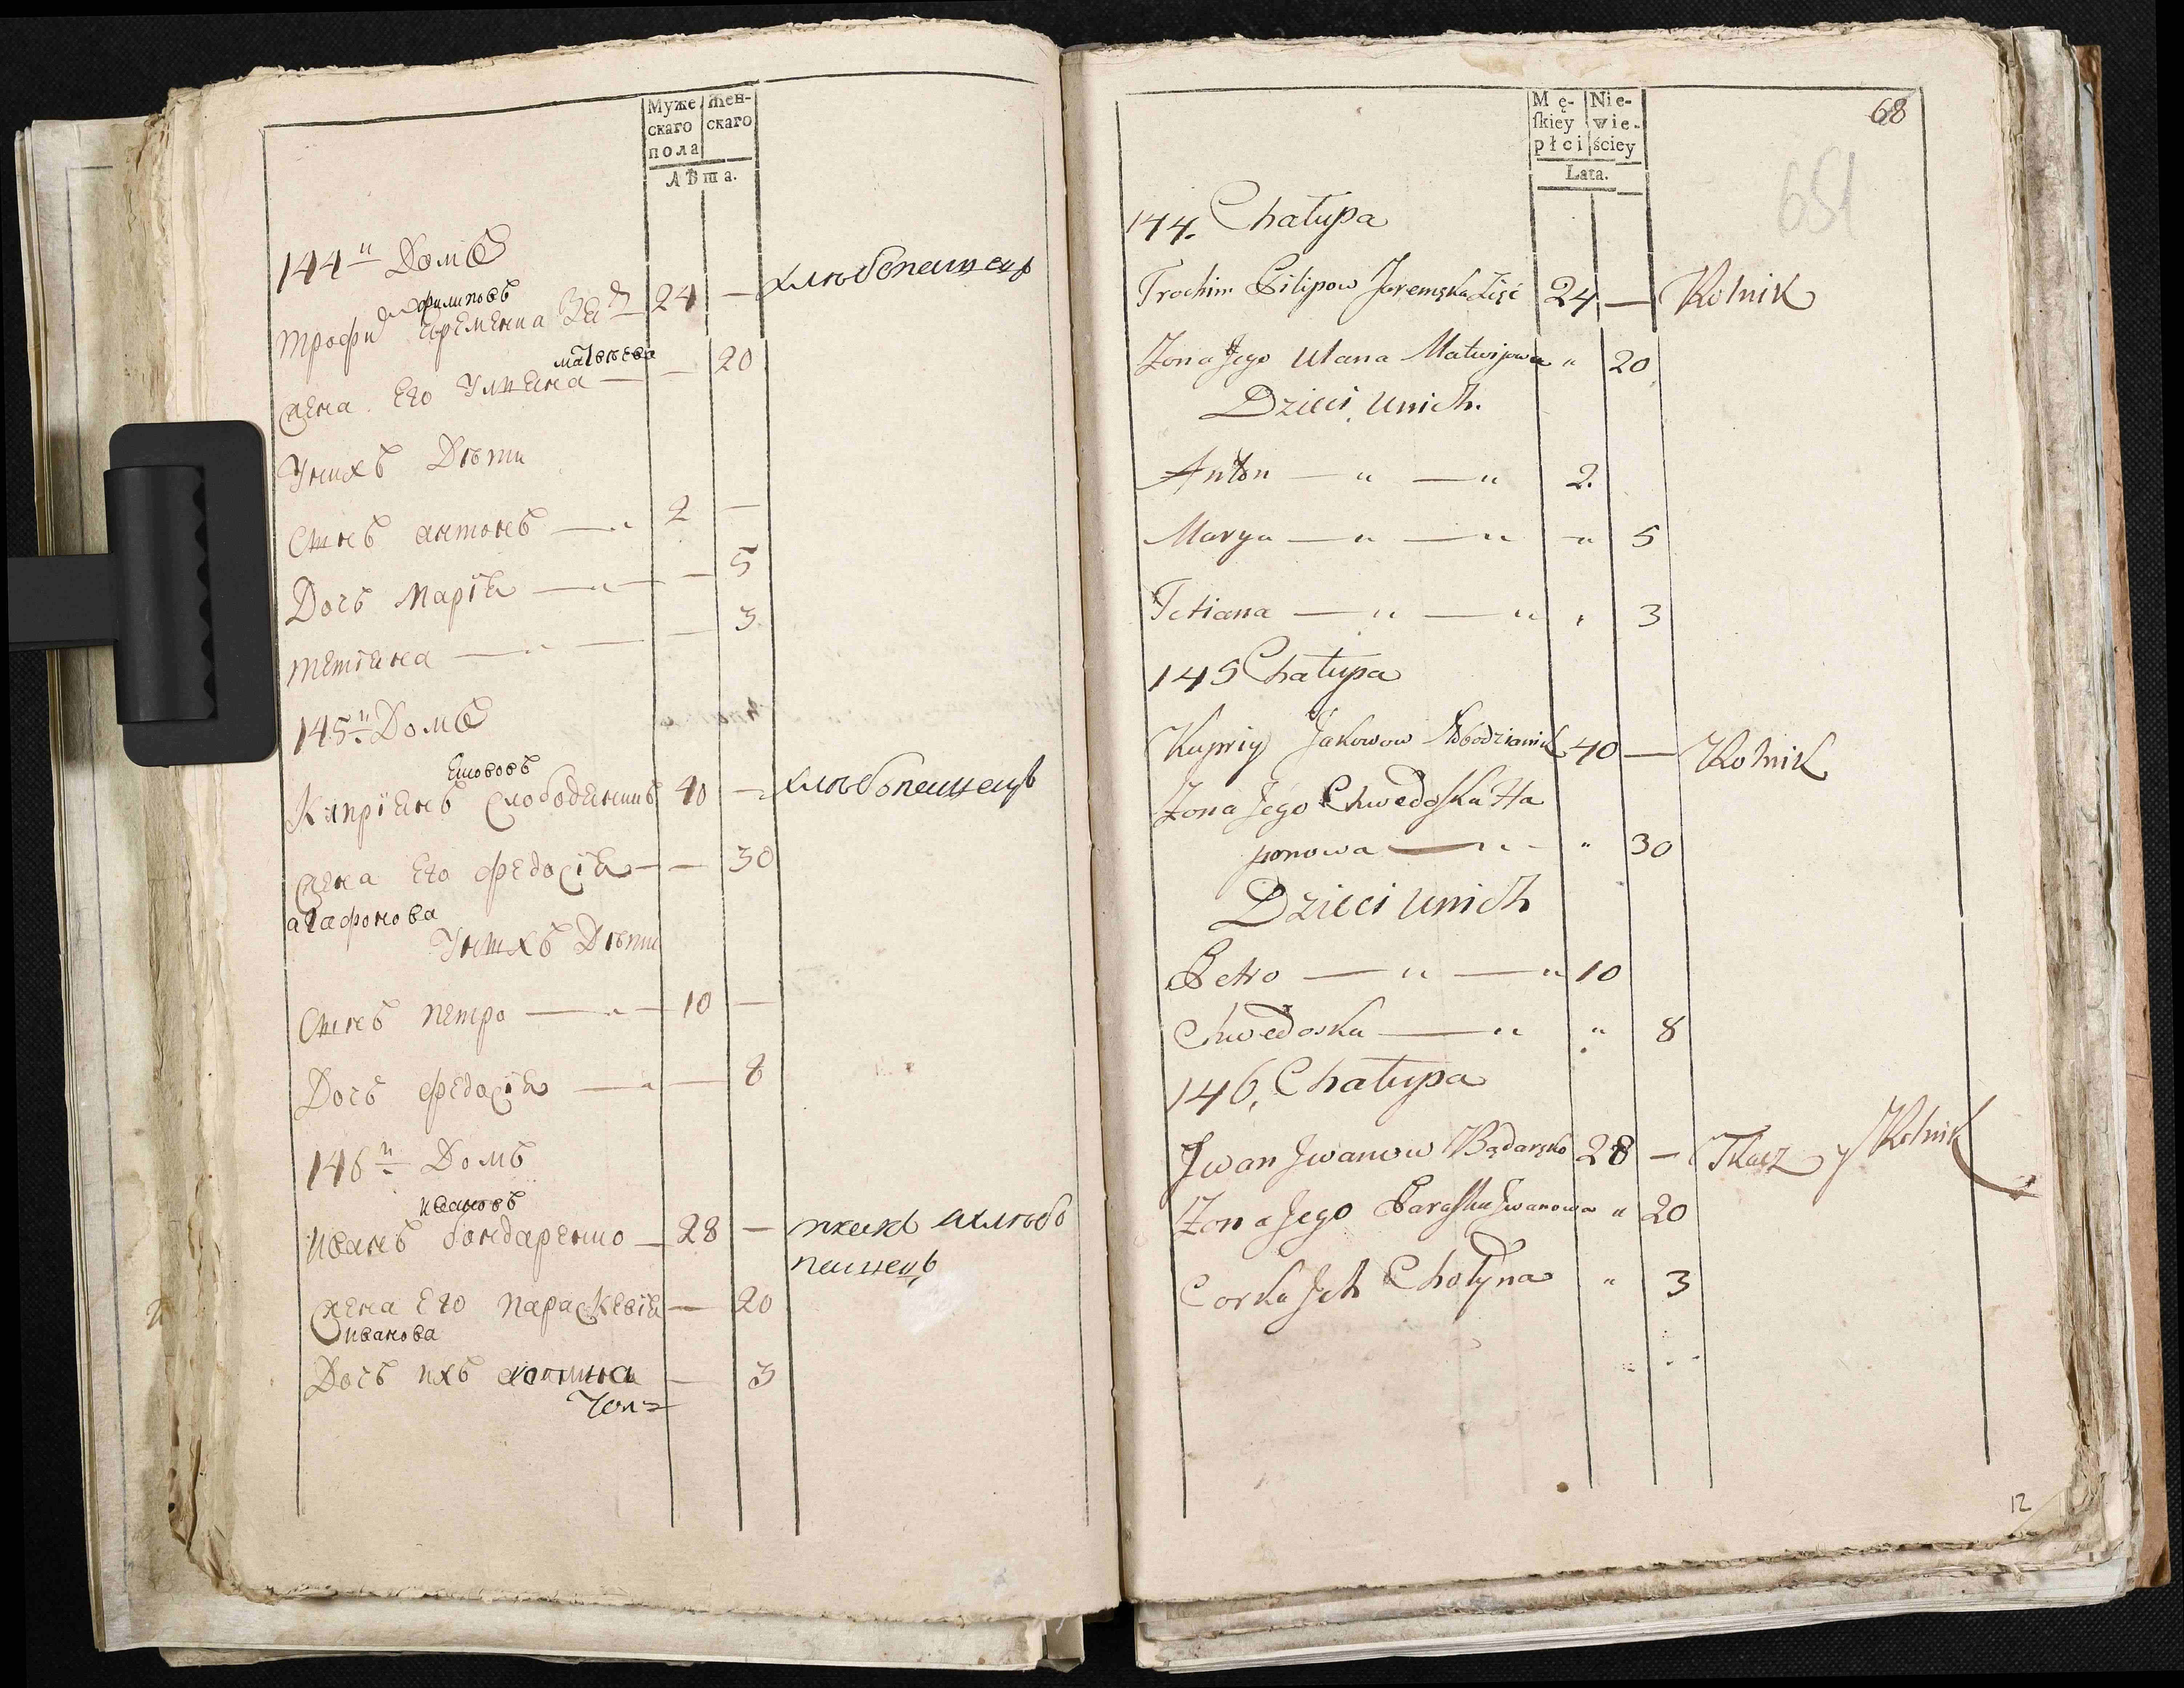 Муже
скаго
пола
Жен-
скаго
Лѣта.
144й Домъ
Филиповъ
Трофим Еременка Зат 24 — хлѣбопашецъ
Матвѣева
Жена Его Ульяна — — 20
Унихъ Дѣти
Сынъ антонъ — 2 —
Дочь Марія — — 5
Тетіана — — 3
145й Домъ
Екововъ
Кипріянъ Слободяникъ 40 — хлѣбопашецъ
Жена Его Федосія — — 30
агафонова
Унихъ Дѣти
Сынъ Петро — 10 —
Дочь Федосія — — 8
146й Домъ
ивановъ
Иванъ Бондаренко — 28 — ткачъ ихлѣбо
пашецъ
Жена Его Параскевія — 20
иванова
Дочь ихъ — 3
Mę-
ſkiey
płci
Nie-
wie-
ściey
Lata.
68
651
144. Chałupa
Trochim Filipow Jaremska Zięć 24 — Rolnik
Zona Jego Ulana Matwijowa " 20
Dzieci unich.
Anton — " — " 2.
Marya — " — " " 5
Tetiana — " — " " 3
145 Chałupa
Kupriy Jakowow Słobodzianik 40 — Rolnik
Zona Jego Chwedoſka Ha
ponowa — " - " 30
Dzieci unich
Petro — " — " 10
Chwedoska — " " 8
146. Chałupa
Jwan Jwanow Bądaręko 28 — Tkacz y Rolnik
Zona Jego Paraſka Jwanowa " 20
Corka Jch Chotyna " 3
12